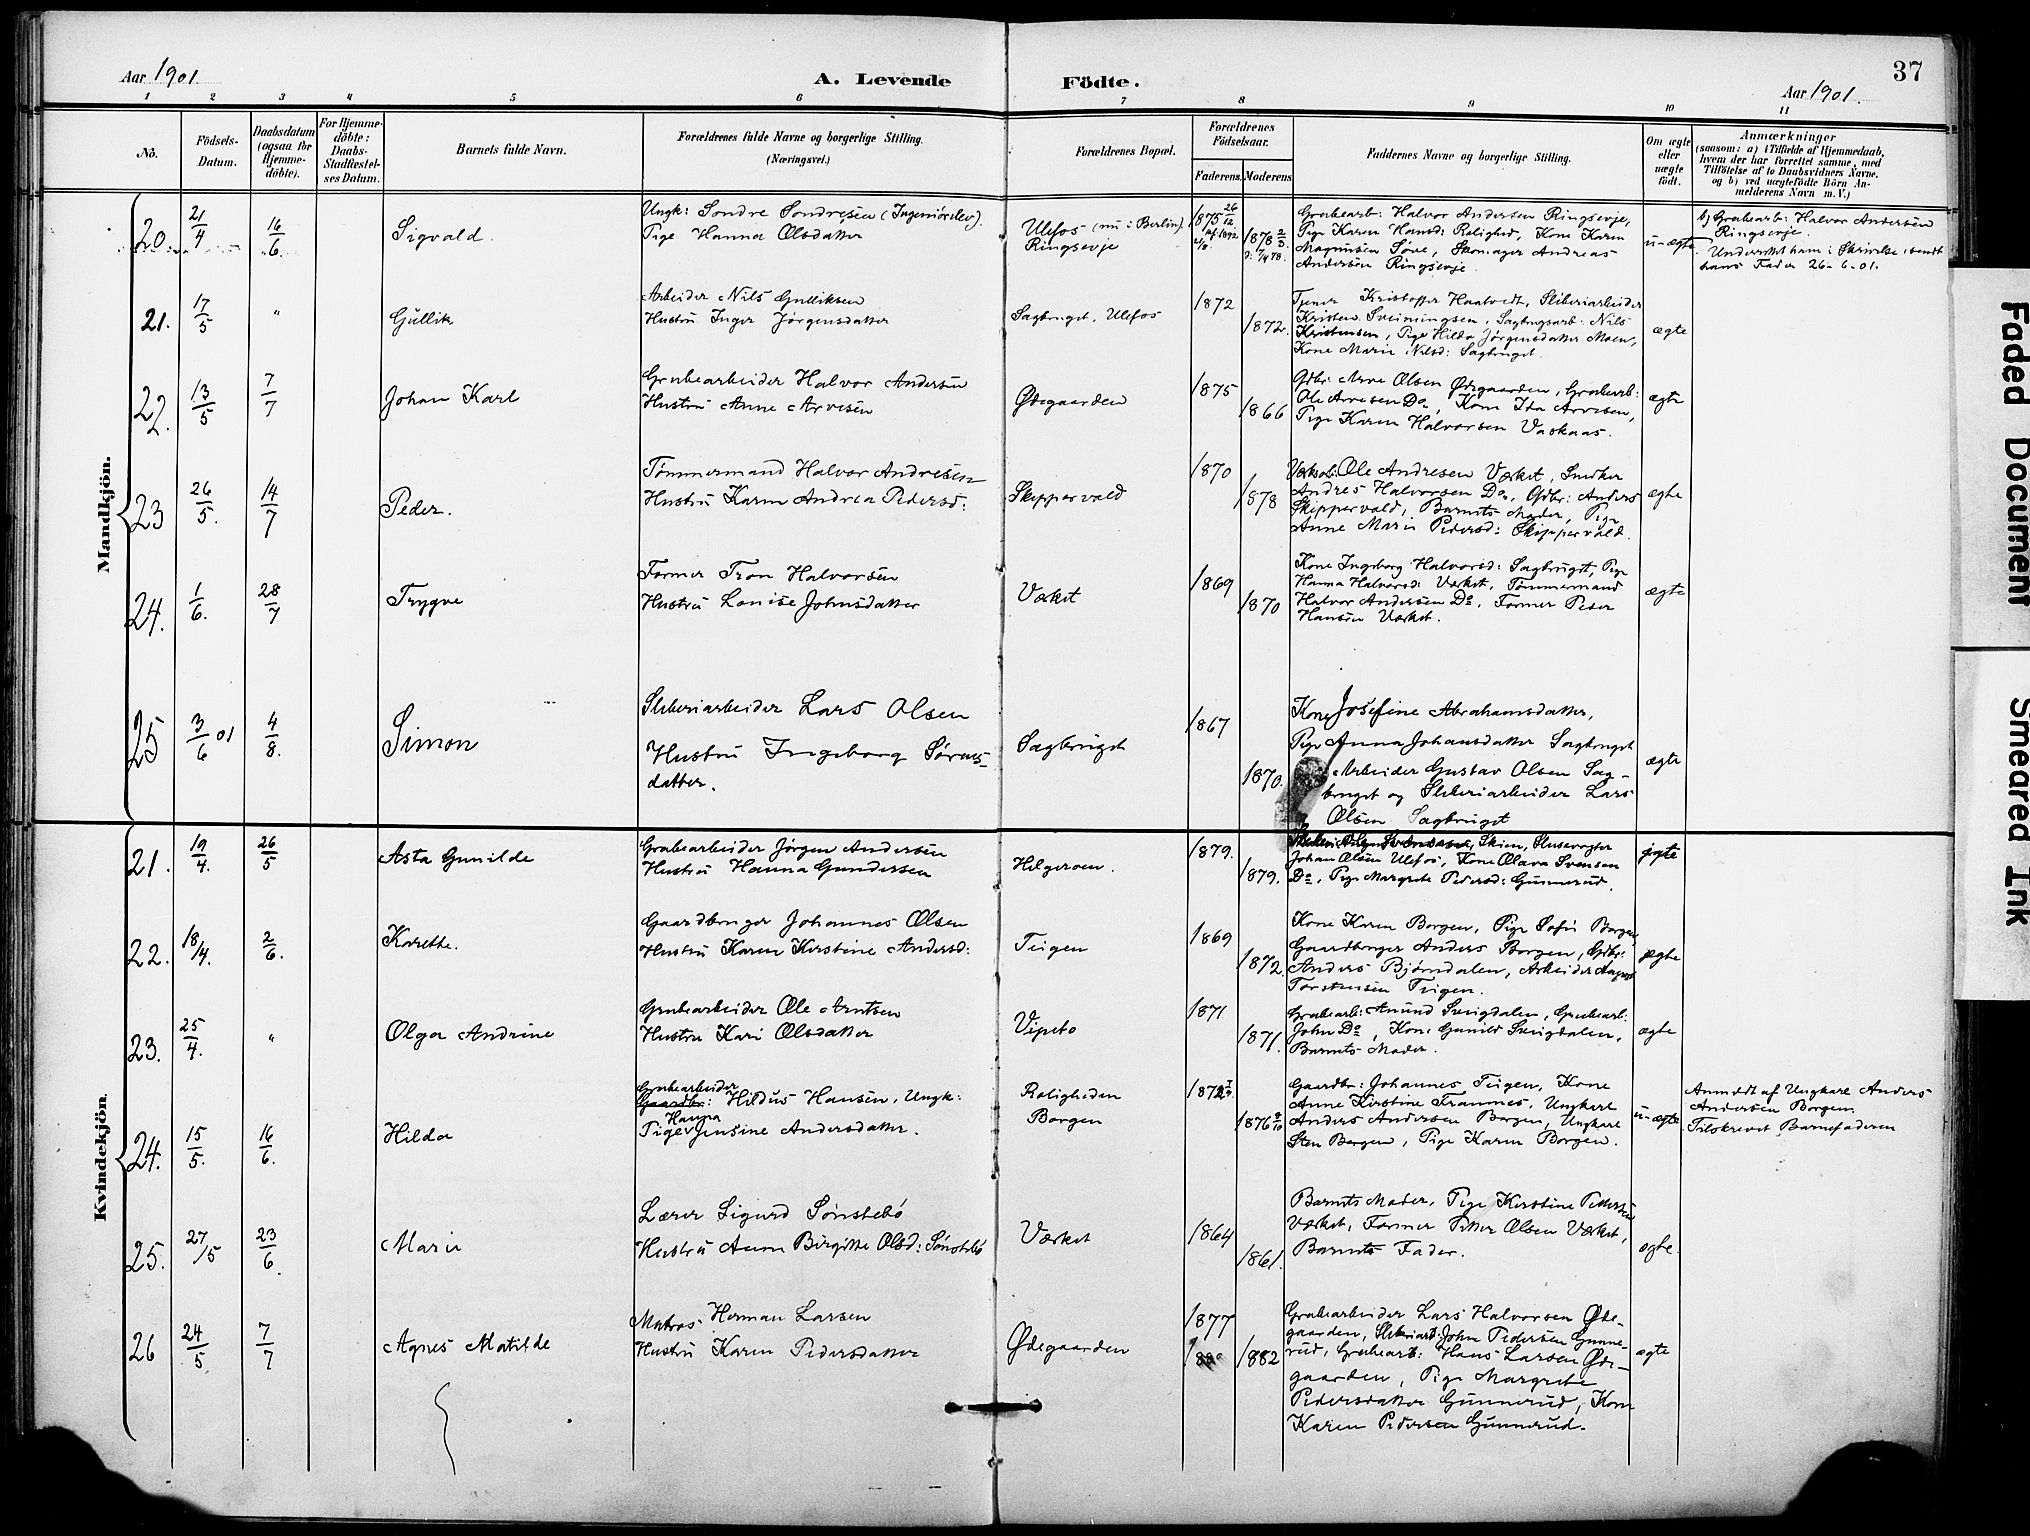 37
Aar 1901.
A. Levende
Födte.
Aar 1901.
1 2 3 4 5 6 7 8 9 10 11
No.
Födsels-
Datum.
Daabsdatum
(ogsaa for
Hjemme-
döbte).
For Hjemme-
döbte:
Daabs-
Stadfæstel-
ses Datum.
Barnets fulde Navn.
Forældrenes fulde Navne og borgerlige Stilling.
(Næringsvei.)
Forældrenes Bopæl.
Forældrenes
Födselsaar.
Faderens. Moderens.
Faddernes Navne og borgerlige Stilling.
Om ægte
eller
uægte
födt.
Anmærkninger
(saasom: a) i Tilfælde af Hjemmedaab,
hvem der har forrettet samme, med
Tilföielse af to Daabsvidners Navne.
og b) ved uægtefödte Börn An-
melderens Navn m.V.)
Mandkjön.
20. 21/4 16/6 Sigvald.
Ungk: Sondre Sondresen (Ingeniörelev).
Pige Hanna Olsdatter
Ulefos (nu i Berlin).
Ringsevje
1875 26/12
1878 2/3
Grubearb: Halvor Andersen Ringsevje,
Pige Karen Hansd: Rolighed, Kone Karen
Magnusen Søve, Skomager Andreas
Andersen Ringsevje.
u-ægte
b) Grubearb: Halvor Andersen
Ringsevje.
Underrettet ham i Skrivelse, sendt
hans Fader 26-6-01.
21. 17/5 " Gullik
Arbeider Nils Gulliksen
Hustru Inger Jørgensdatter
Sagbruget, Ulefos
1872
1872.
Tjener Kristoffer Haatvedt, Sliberiarbeider
Kristen Sveinungsen, Sagbrugsarb: Nils
Kristensen, Pige Hilda Jørgensdatter Moen,
Kone Marie Nilsd: Sagbruget.
ægte
22. 13/5 7/7 Johan Karl
Grubearbeider Halvor Andersen
Hustru Anne Arvesen
Ødegaarden
1875
1866
Gdbr: Arve Olsen Ødegaarden, Grubearb:
Ole Arvesen Do, Kone Ida Arvesen,
Pige Karen Halvorsen Vaskaas.
ægte
23 26/5. 14/7 Peder.
Tømmermand Halvor Andresen
Hustru Karen Andrea Pedersd:
Skippervald
1870
1878
Værksarb: Ole Andresen Værket, Snedker
Andres Halvorsen Do, Gdbr: Anders
Skippervald, Barnets Moder, Pige
Anne Marie Pedersd: Skippervald.
ægte
24. 1/6. 28/7 Trygve
Former Tron Halvorsen
Hustru Lovise Johnsdatter
Værket
1869
1870
Kone Ingeborg Halvorsd: Sagbruget, Pige
Hanna Halvorsd: Værket, Tømmermand
Halvor Andersen Do, Former Peder
Hansen Værket.
ægte
25 3/6 01 4/8. Simon
Sliberiarbeider Lars Olsen
Hustru Ingeborg Sørens-
datter.
Sagbruget
1867
1870.
Kone Josefine Abrahamsdatter,
Pige Anna Johansdatter Sagbruget
Arbeider Gustav Olsen Sag-
bruget og Sliberiarbeider Lars
Olsen Sagbruget
ægte
Kvindekjön.
21. 19/4. 26/5 Asta Gunilde
Grubearbeider Jørgen Andersen
Hustru Hanna Gundersen
Helgeroen.
1879.
1879.
Skien, Slusevogter
Johan Olsen Ulefos, Kone Olava Svensen
Do, Pige Margrete Pedersd: Gunnerud.
ægte
22. 18/4. 2/6. Karethe.
Gaardbruger Johannes Olsen
Hustru Karen Kirstine Andersd:
Teigen
1869
1872.
Kone Karen Borgen, Pige Sofie Borgen,
Gaardbruger Anders Borgen, Gdbr:
Anders Bjørndalen, Arbeider August
Torstensen Teigen.
ægte
23. 25/4. " Olga Andrine
Grubearbeider Ole Arntsen
Hustru Kari Olsdatter
Vipeto
1871
1871.
Grubearb: Amund Svigdalen, Grubearb:
John Do, Kone Gunild Svigdalen,
Barnets Moder.
ægte
24. 15/5. 16/6. Hilda
Grubearbeider
Gaardbr: Hildus Hansen, Ungk:
Hanna
Pige Jensine Andersdatter.
Roligheden
Borgen
1872
1876 9/10
Gaardbr: Johannes Teigen, Kone
Anne Kirstine Framnes, Ungkarl
Anders Andersen Borgen, Ungkare
Sten Borgen, Pige Karen Borgen.
u-ægte
Anmeldt af Ungkarl Anders
Andersen Borgen.
Tilskrevet Barnefaderen
25. 27/5 23/6. Marie
Lærer Sigurd Sønstebö
Hustru Anne Birgitte Olsd: Sønstebö
Værket
1864
1861.
Barnets Moder, Pige Kirstine Pettersen
Værket, Former Petter Olsen Værket,
Barnets Fader.
ægte.
26 24/5 7/7 Agnes Matilde
Matros Herman Larsen
Hustru Karen Pedersdatter
Ødegaarden
1877
1882
Grubearbeider Lars Halvorsen Øde-
gaarden, Sliberiarb: John Pedersen Gunne-
rud, Grubearb: Hans Larsen Øde-
gaarden, Pige Margrete
Pedersdatter Gunnerud, Kone
Karen Pedersen Gunnerud.
ægte
Faded Document
Smeared Ink